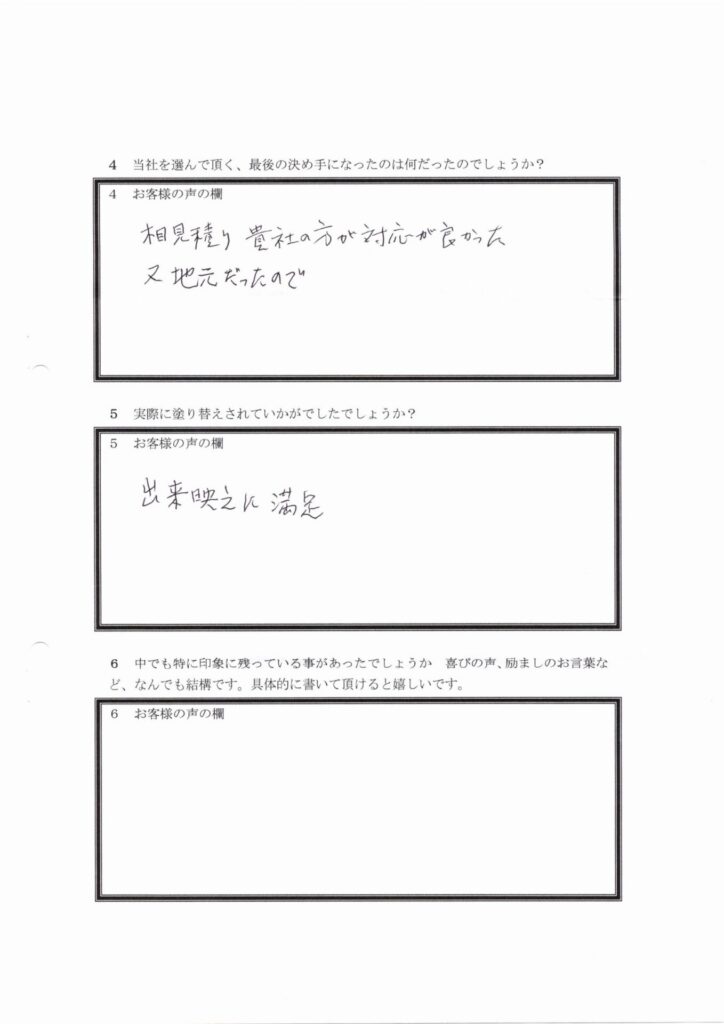 4 当社を選んで頂く、最後の決め手になったのは何だったのでしょうか？
4 お客様の声の欄
相見積り 貴社の方が対応が良かった
又 地元だったので
5 実際に塗り替えされていかがでしたでしょうか？
5 お客様の声の欄
出来映えに 満足
6 中でも特に印象に残っている事があったでしょうか 喜びの声、励ましのお言葉な
ど、なんでも結構です。具体的に書いて頂けると嬉しいです。
6 お客様の声の欄